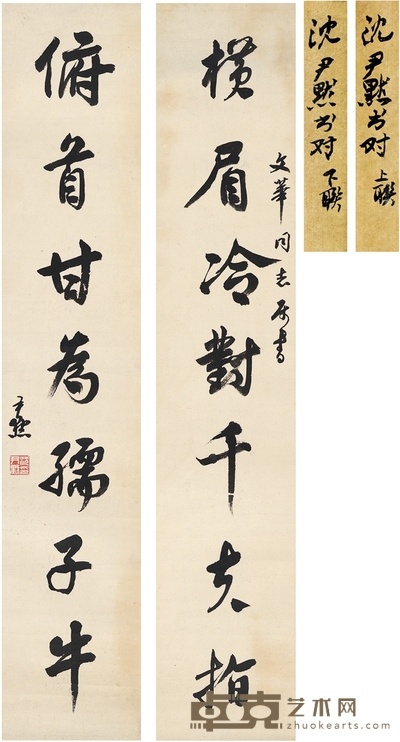 沈尹默书对 上聯
沈尹默书对 下聯
横眉冷對千夫指
文華同志属書
俯首甘為孺子牛
尹默
卓克艺术网
www.zhuokearts.com